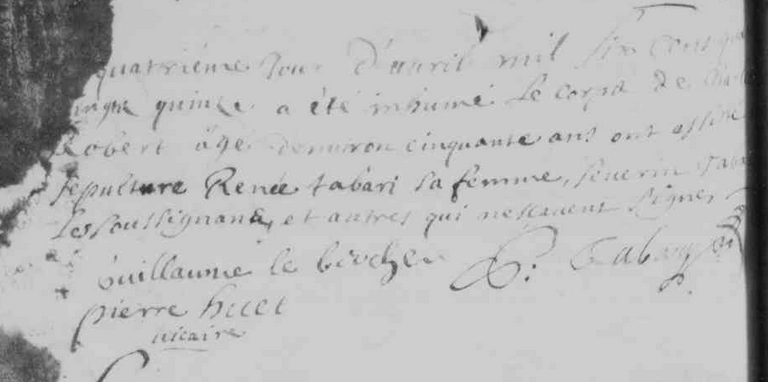 quatriéme Jour d'auril mil six cens qua
vingt quinze a été inhumé Le corps de Charle
Robert âgé denuiron cinquante ans ont assisté
sepulture Renée tabari sa femme, seuerin Taba
Les soussignans, et autres qui nesçauent signer
Guillaume le S: Tabary
pierre huet
uicaire